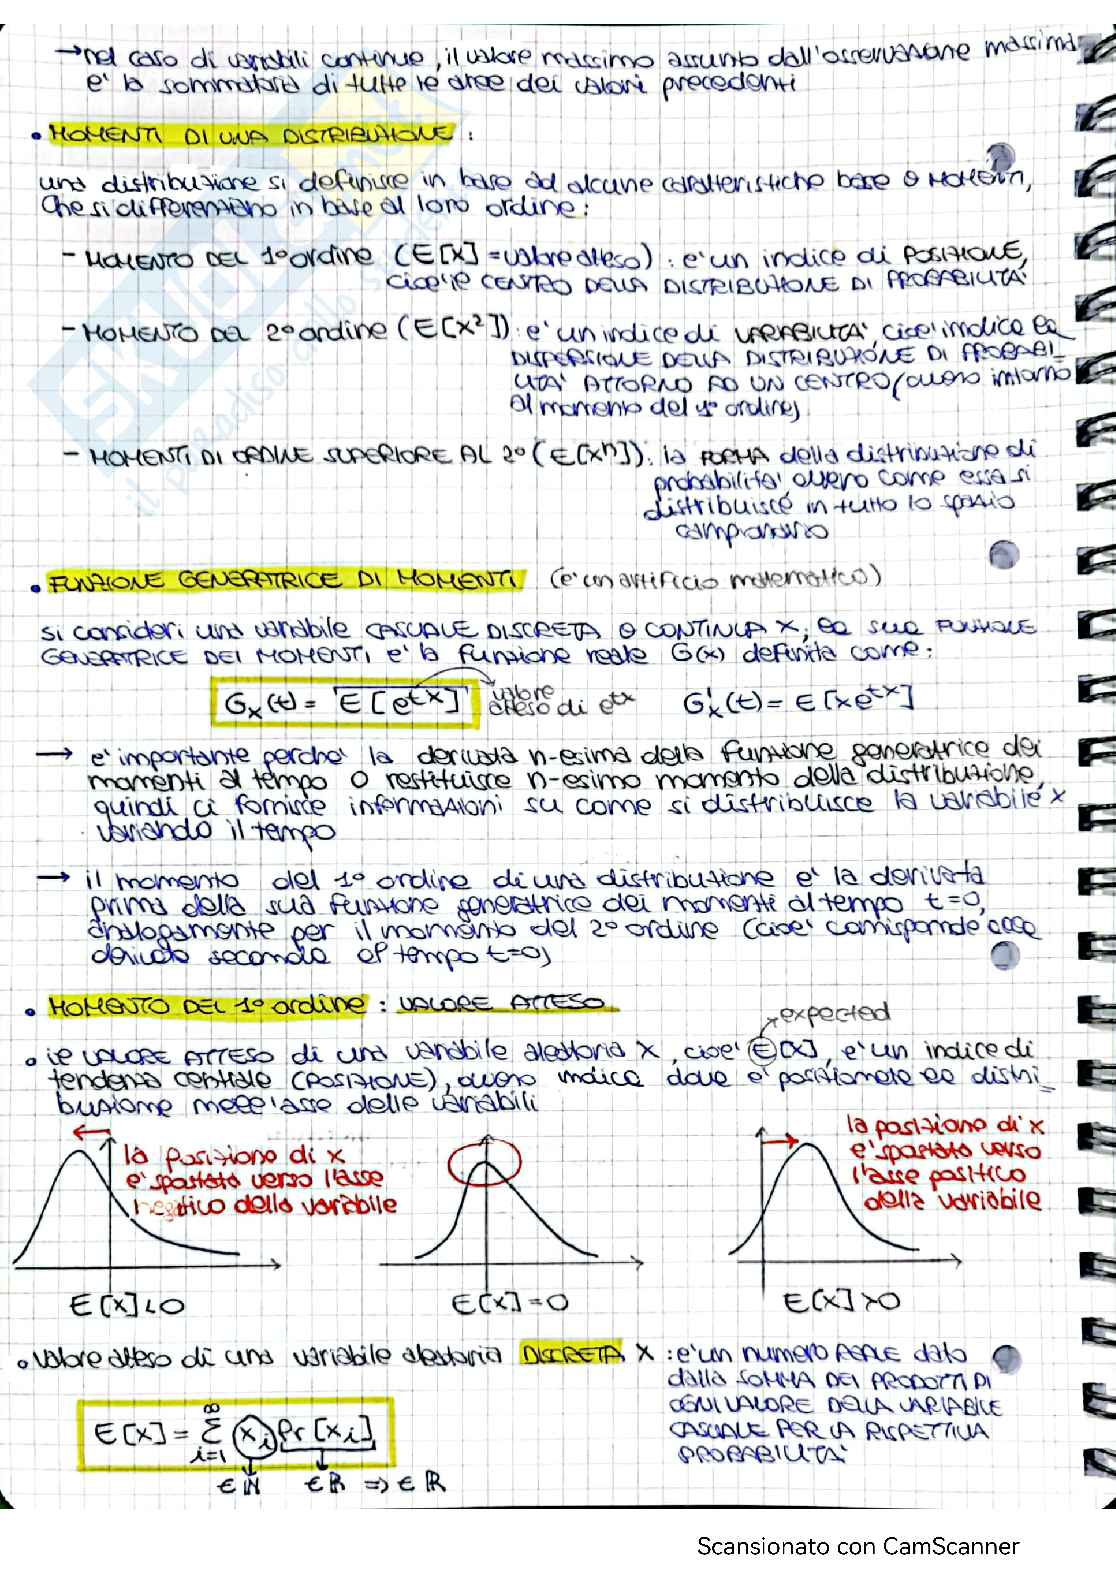 → nel caso di variabili continue, il valore massimo assunto dall'osservazione massima
e' la sommatoria di tutte le aree dei valori precedenti
• MOMENTI DI UNA DISTRIBUZIONE :
una distribuzione si definisce in base ad alcune caratteristiche base o MOMENTI,
che si differenziano in base al loro ordine :
- MOMENTO DEL 1° ordine (E[X] = valore atteso) : e' un indice di POSIZIONE,
cioe' il CENTRO DELLA DISTRIBUZIONE DI PROBABILITA'
- MOMENTO DEL 2° ordine (E[X²]) : e' un indice di VARIABILITA', cioe' indica la
DISPERSIONE DELLA DISTRIBUZIONE DI PROBABI-
LITA' ATTORNO AD UN CENTRO (ovvero intorno
al momento del 1° ordine)
- MOMENTI DI ORDINE SUPERIORE AL 2° (E[Xⁿ]) : la FORMA della distribuzione di
probabilita', ovvero come essa si
distribuisce in tutto lo spazio
campionario
• FUNZIONE GENERATRICE DI MOMENTI (e' un artificio matematico)
si consideri una variabile CASUALE DISCRETA O CONTINUA X, la sua FUNZIONE
GENERATRICE DEI MOMENTI e' la funzione reale G(x) definita come :
Gx(t) = E[e^tx] valore atteso di e^tx G'x(t) = E[xe^tx]
→ e' importante perche' la derivata n-esima della funzione generatrice dei
momenti al tempo 0 restituisce n-esimo momento della distribuzione,
quindi ci fornisce informazioni su come si distribuisce la variabile x
variando il tempo
→ il momento del 1° ordine di una distribuzione e' la derivata
prima della sua funzione generatrice dei momenti al tempo t=0,
analogamente per il momento del 2° ordine (cioe' corrisponde alla
derivata seconda al tempo t=0)
• MOMENTO DEL 1° ordine : VALORE ATTESO
expected
• il VALORE ATTESO di una variabile aleatoria X, cioe' E[X], e' un indice di
tendenza centrale (POSIZIONE), ovvero indica dove e' posizionata la distri-
buzione nell'asse delle variabili
la posizione di x
e' spostata verso l'asse
negativo della variabile
la posizione di x
e' spostata verso
l'asse positivo
della variabile
E[X]<0 E[X]=0 E[X]>0
• valore atteso di una variabile aleatoria DISCRETA X : e' un numero REALE dato
dalla SOMMA DEI PRODOTTI DI
OGNI VALORE DELLA VARIABILE
CASUALE PER LA RISPETTIVA
PROBABILITA'
E[X] = ∞ Σ i=1 xi Pr[xi]
∈ ℕ ∈ ℝ ⇒ ∈ ℝ
Scansionato con CamScanner